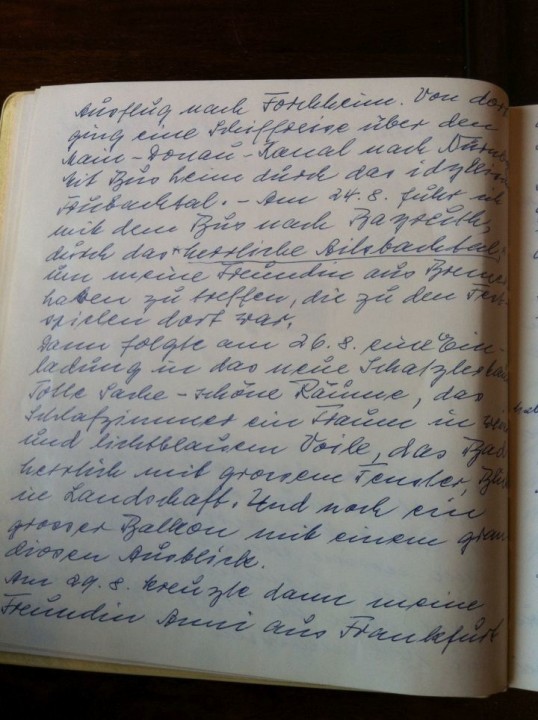 Ausflug nach Forchheim. Von dort
ging eine Schiffreise über den
Main-Donau-Kanal nach Nürnb
mit Bus heim durch das idyllisch
Trubachtal. - Am 24.8. fuhr ich
mit dem Bus nach Bayreuth,
durch das herrliche Ailsbachtal,
um meine Freundin aus Bremer
haben zu treffen, die zu den Fest-
spielen dort war.
Dann folgte am 26.8. eine Ein-
ladung in das neue
Tolle Sache - schöne Räume, das
Schlafzimmer ein Traum in weis
und lichtblauem Voile, das Bad
herrlich mit grossem Fenster, Blick
in Landschaft. Und noch ein
grosser Balkon mit einem gran
diosen Ausblick.
Am 29.8. kreuzte dann meine
Freundin Anni aus Frankfurt